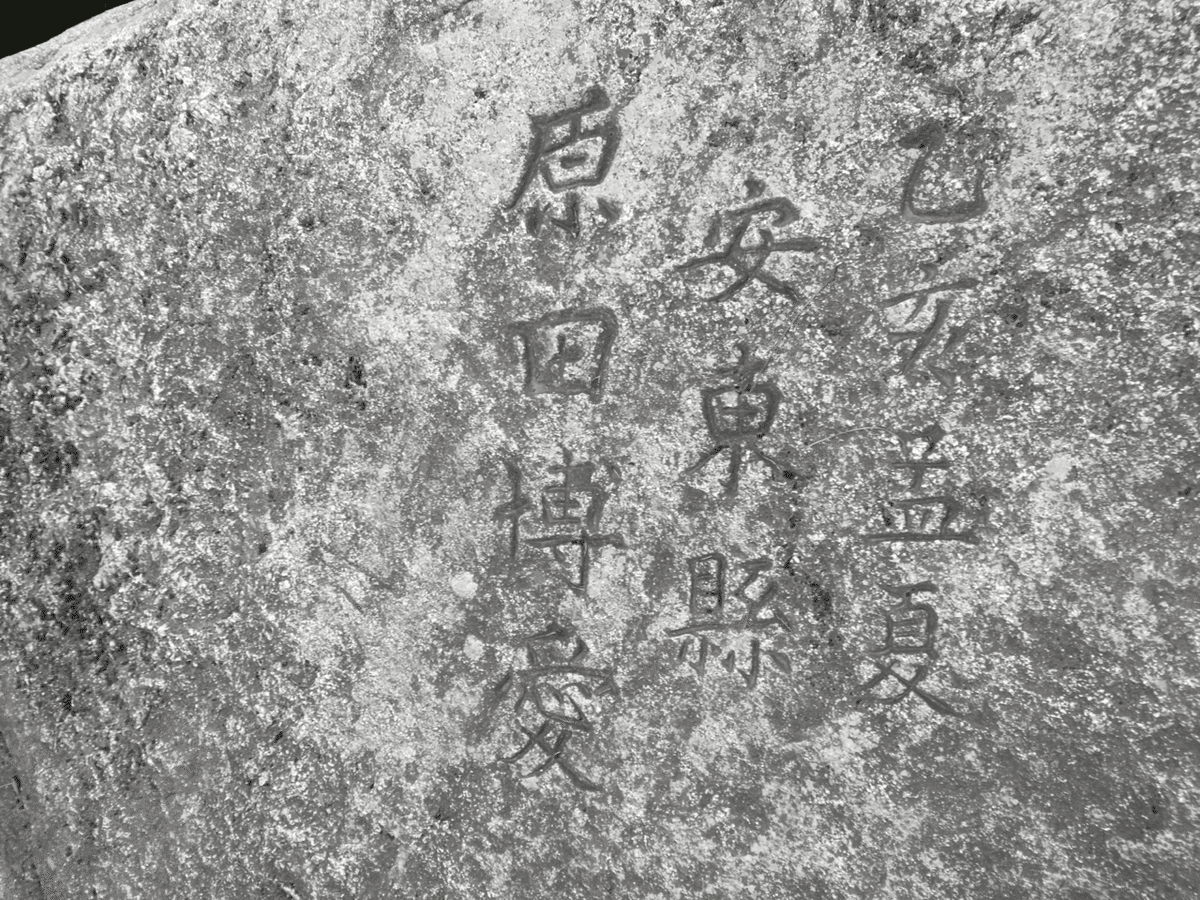 乙亥孟夏
安東縣
原田博愛